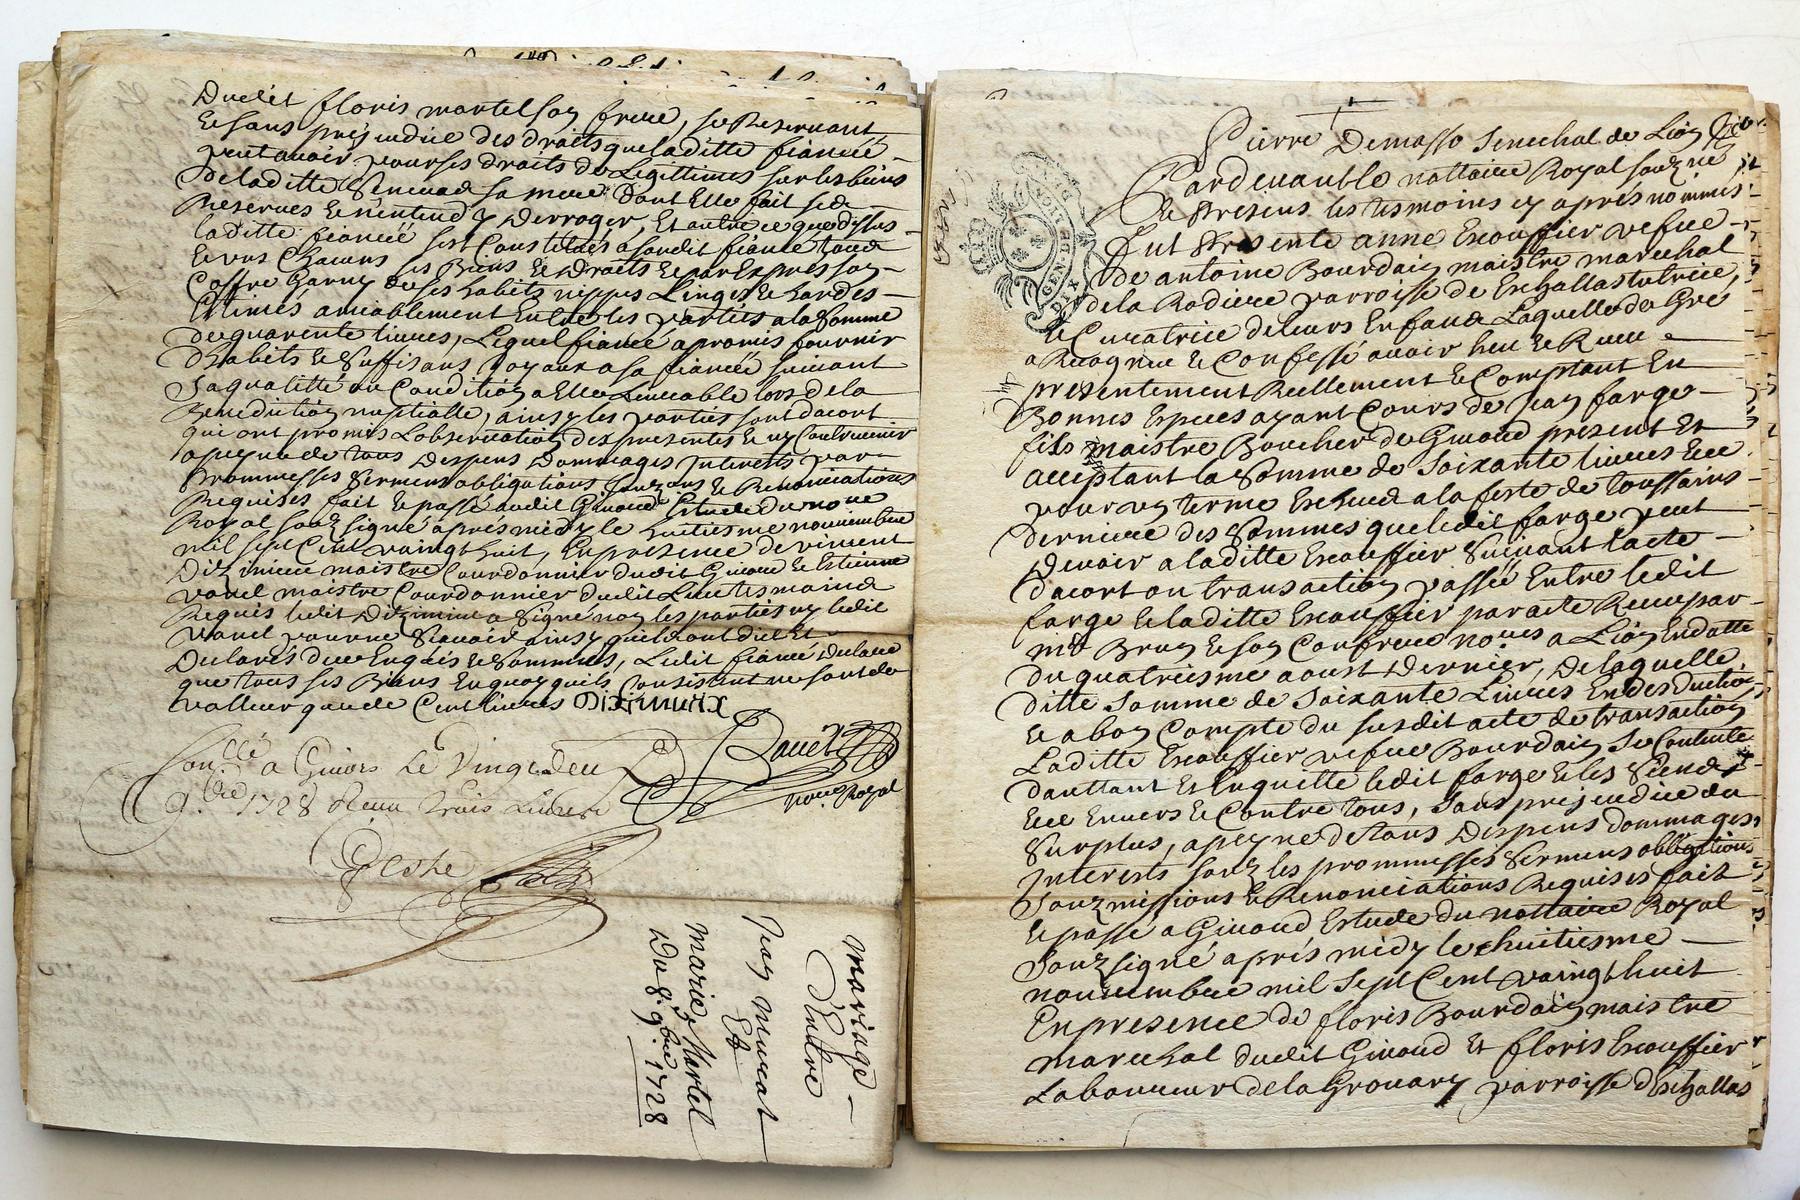 Dudit floris martel son frere, se Reservant
Et sans prejudice des droits que laditte fiancée
peut avoir pour ses droits de Legittimes sur les biens
de laditte sa mere dont Elle fait
Reserves Et n'entend y deroger, Et outre ce que dessus
laditte fiancée sest Constituée a sondit fiancé tous
Et uns Chacuns ses Biens Et Droits Et par Expres son
Coffre Garny de ses habits nippes Linges Et hardes
Estimés amiablement Entre les parties a la Somme
de quarente livres, Lequel fiancé a promis fournir
D'habits Et Suffisans Joyaux a sa fiancée suivant
sa qualitté ou Condition a Elle lors de la
Benediction nuptialle, ainsy les parties sont dacort
qui ont promis Lobservation des presentes Et ny Contrevenir
a peyne de tous Despens Dommages Interests par
prommesses Sermens obligations Et Renonciations
Requises fait Et passé audit Givord Estude du nore
Royal souz signé apres midy le huitiesme novvembre
mil sept Cent vaingt huit, En presence de vincent
Dizimieu maistre Courdonnier dudit Givord Et Estienne
maistre Courdonnier dudit Lieu tesmoins
Requis ledit Dizimieu a Signé non les parties ny ledit
pour ne Scavoir ainsy quils ont dit Et
Declarés de ce Enquis Et Sommés, Ledit fiancé declare
que tous ses Biens En quoy quils Consistent ne sont de
valleur que de Cent livres DIZIMIEUX
nore Royal
Conllé a Givors Le Vingt deux
9bre 1728 Receu trois Livres
mariage
Entre
Jean Murat
Et
Marie Martel
Du 8e 9bre 1728
Pierre Demasso Senechal de Lion
Pardevant le nottaire Royal souz né
Et Presens les tesmoins cy aprés nommés
fut Presente anne Escouffier vefve
de antoine Bourdain maistre marechal
de la Rodiere parroisse de Eschallas tutrice,
Et Curatrice de leurs Enfans Laquelle de Gré
a Recognue Et Confessé avoir heu Et Receu
presentement Reellement Et Comptant En
Bonnes Especes ayant Cours de Jean farge
fils maistre Boucher de Givord present Et
acceptant la Somme de Soixante livres Et ce
pour un terme Escheud a la feste de toussains
derniere des Sommes que ledit farge peut
Devoir a laditte Escouffier Suivant lacte
dacort ou transaction passée Entre ledit
farge Et laditte Escouffier par acte Receu par
me Brun Et son Confrere nores a Lion En datte
du quatriesme aoust Dernier, De laquelle
ditte Somme de Soixante Livres En desduction
Et a bon Compte du susdit acte de transaction
Laditte Escouffier vefve Bourdain Se Contente
dauttant Et En quitte ledit farge Et les Siens
Et ce Envers Et Contre tous, Sans prejudice du
Surplus, a peyne de tous Despens dommages
Interests souz les prommesses Sermens obligations
Souzmissions Et Renonciations Requises fait
Et passé a Givord Estude du nottaire Royal
Souz signé apres midy le huitiesme
novvembre mil sept Cent vaingt huit
En presence de floris Bourdain maistre
marechal dudit Givord Et floris Escouffier
Laboureur de la parroisse d'Eschallas
GEN. DE LION
DIX